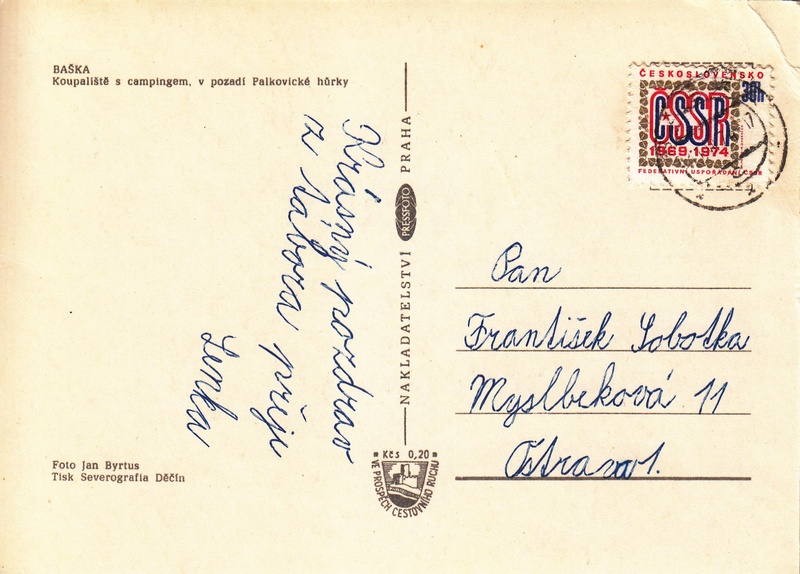 BAŠKA
Koupaliště s campingem, v pozadí Palkovické hůrky
Krásný pozdrav
z tabora přeje
Lenka
Foto Jan Byrtus
Tisk Severografia Děčín
NAKLADATELSTVÍ PRESSFOTO PRAHA
Kčs 0,20
VE PROSPĚCH CESTOVNÍHO RUCHU
ČESKOSLOVENSKO
30h
ČSSR
1969·1974
FEDERATIVNÍ USPOŘÁDÁNÍ ČSSR
Pan
František Sobotka
Myslbeková 11
Ostrava 1.